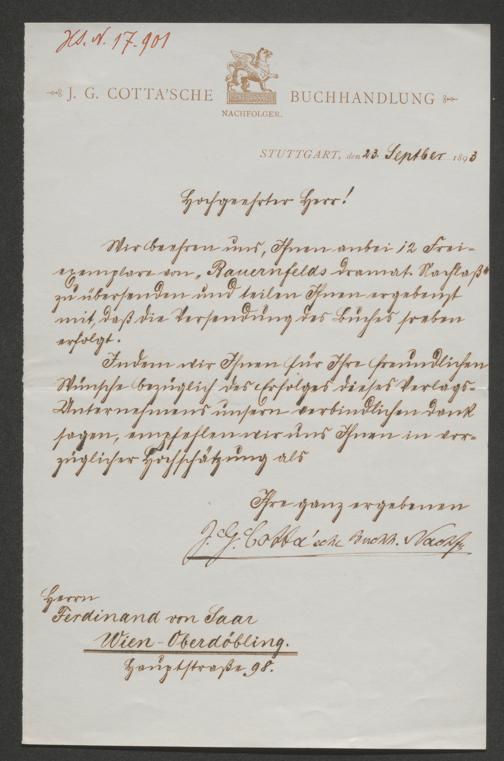 HS. N. 17.901
J. G. COTTA'SCHE BUCHHANDLUNG
NACHFOLGER.
STUTTGART, den 23. Septber 1893
Hochgeehrter Herr!
Wir beehren uns, Ihnen anbei 12 Frei-
exemplare von „Bauernfelds dramat. Nachlaß“
zu übersenden und teilen Ihnen ergebenst
mit, daß die Versendung des Buches soeben
erfolgt.
Indem wir Ihnen für Ihre freundlichen
Wünsche bezüglich des Erfolges dieses Verlags-
Unternehmens unsern verbindlichen Dank
sagen, empfehlen wir uns Ihnen in vor-
züglicher Hochschätzung als
Ihre ganz ergebenen
J. G. Cotta'sche Buchh. Nachf.
Herrn
Ferdinand von Saar
Wien-Oberdöbling.
Hauptstraße 98.